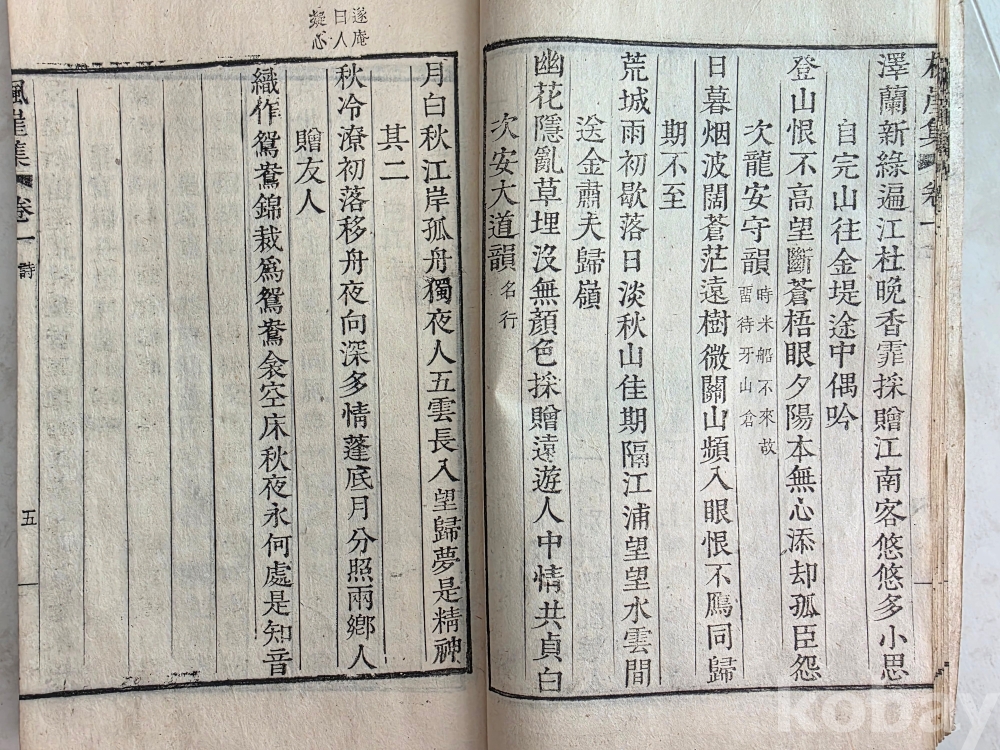 楓崖集 卷一
澤蘭新綠遍江杜晚香霏採贈江南客悠悠多小思
自完山往金堤途中偶吟
登山恨不高望斷蒼梧眼夕陽本無心添却孤臣怨
次龍安守韻 時米船不來故
留待牙山倉
日暮烟波闊蒼茫遠樹微關山頻入眼恨不鴈同歸
期不至
荒城雨初歇落日淡秋山佳期隔江浦望望水雲間
送金肅夫歸嶺
幽花隱亂草埋沒無顏色採贈遠遊人中情共貞白
次安大道韻 名行
遂庵
曰人
疑心
月白秋江岸孤舟獨夜人五雲長入望歸夢是精神
其二
秋冷潦初落移舟夜向深多情蓬底月分照兩鄕人
贈友人
織作鴛鴦錦裁爲鴛鴦衾空床秋夜永何處是知音
楓崖集 卷一 詩 五
kobay